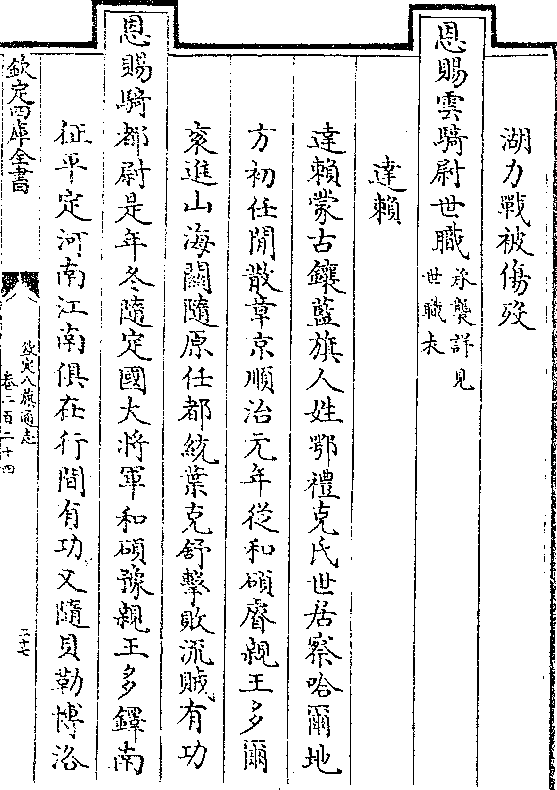 湖力戰被傷歿
恩賜雲騎尉世職承襲詳見
世職表
達賴
達賴蒙古鑲藍旗人姓鄂禮克氏世居察哈爾地
方初任閒散章京順治元年從和碩睿親王多爾
衮進山海關隨原任都統葉克舒擊敗流賊有功
恩賜騎都尉是年冬隨定國大將軍和碩豫親王多鐸南
征平定河南江南俱在行間有功又隨貝勒博洛
欽定四庫全書
欽定八旗通志
卷二百二十四
三十七